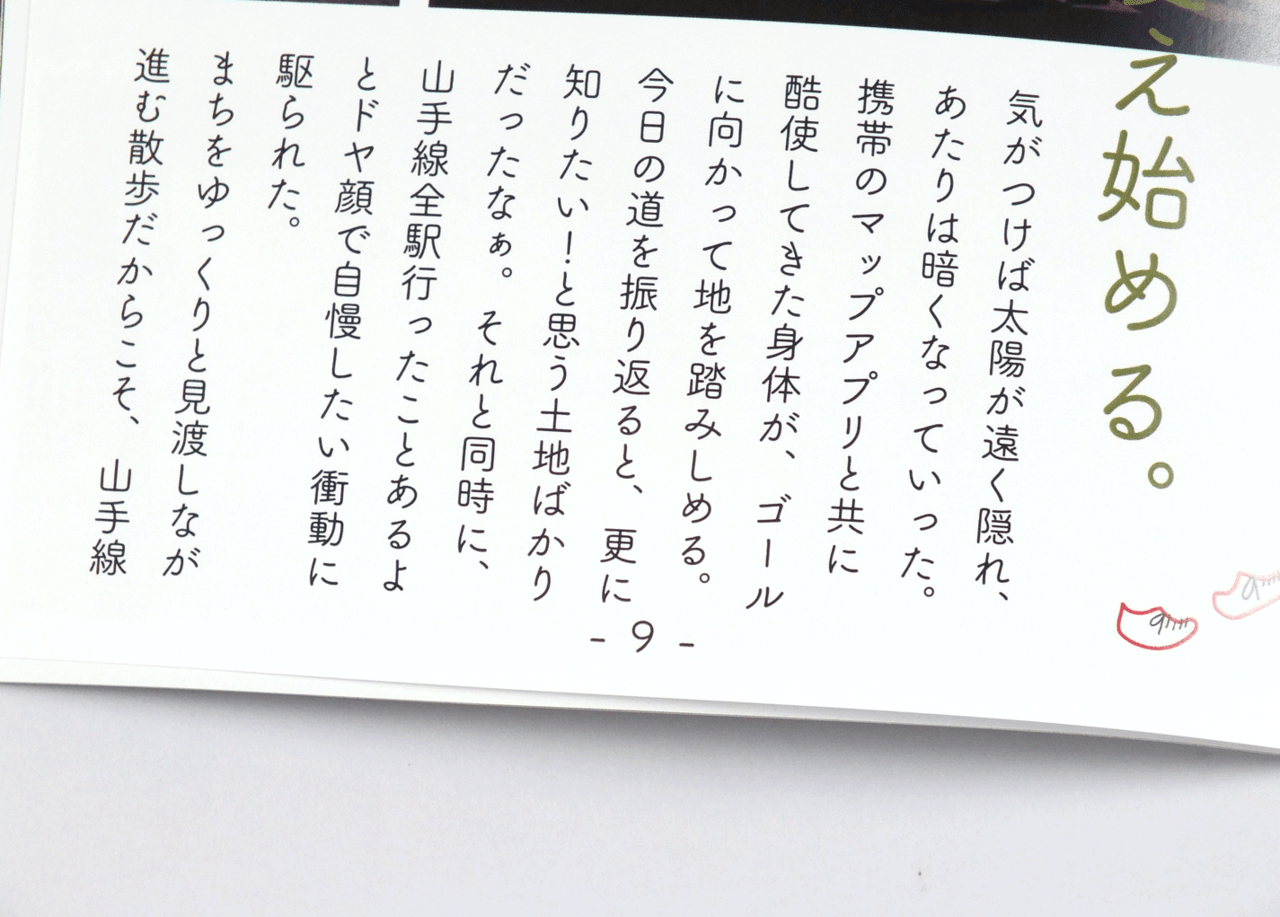 え始める。
気がつけば太陽が遠く隠れ、
あたりは暗くなっていった。
携帯のマップアプリと共に
酷使してきた身体が、ゴール
に向かって地を踏みしめる。
今日の道を振り返ると、更に
知りたい！と思う土地ばかり
だったなぁ。それと同時に、
山手線全駅行ったことあるよ
とドヤ顔で自慢したい衝動に
駆られた。
まちをゆっくりと見渡しなが
進む散歩だからこそ、山手線
- 9 -